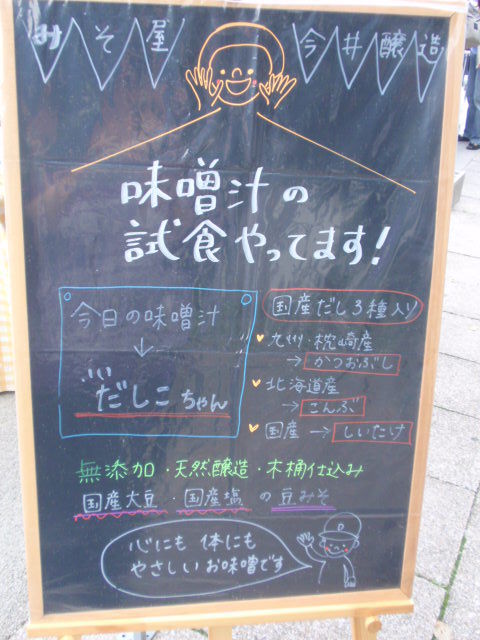 みそ屋 今井醸造
味噌汁の
試食やってます!
今日の味噌汁
↓
だしこちゃん
国産だし3種入り
九州・枕崎産
→ かつおぶし
北海道産
→ こんぶ
国産 → しいたけ
無添加・天然醸造・木桶仕込み
国産大豆・国産塩の豆みそ
心にも 体にも
やさしい お味噌です